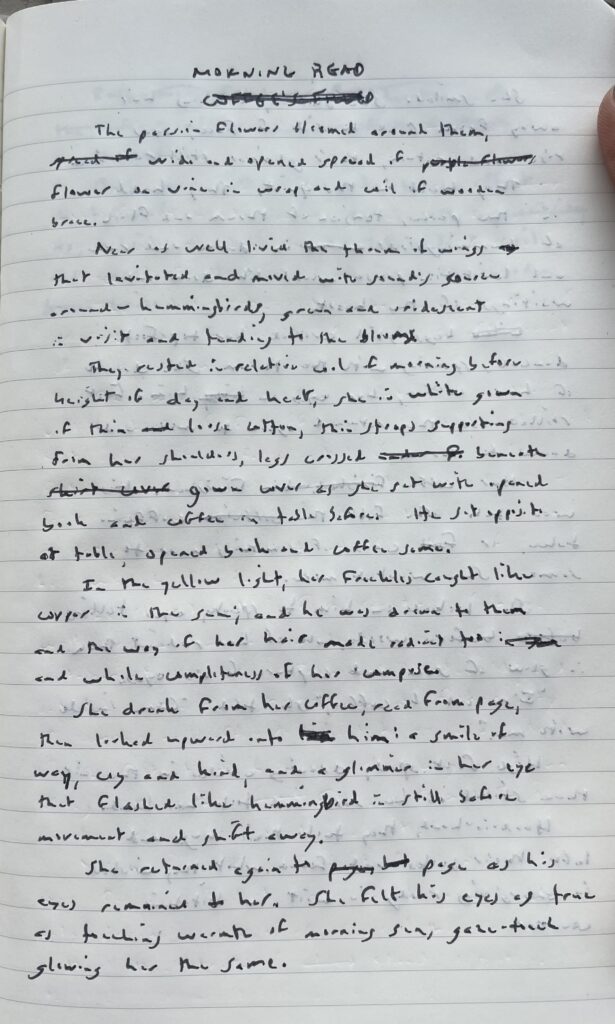 MORNING READ
The passion flowers bloomed around them,
wide and opened spread of
flower on vine in wrap and coil of wooden
brace.
Near as well lived the thrum of wings
that levitated and moved with sound's source
around – hummingbirds, green and iridescent
in visit and tending to the blooms.
They rested in relative cool of morning before
height of day and heat, she in white gown
of thin and loose cotton, thin straps supporting
from her shoulders, legs crossed beneath
gown cover as she sat with opened
book and coffee on table before. He sat opposite
at table, opened book and coffee same.
In the yellow light, her freckles caught like
copper in the sun, and he was drawn to them
and the way of her hair made radiant too in
and while completeness of her composed
She drank from her coffee, read from page,
then looked upward onto him: a smile of
way, coy and kind, and a glimmer in her eye
that flashed like hummingbird in still before
movement and shift away.
She returned again to page as his
eyes remained to her. She felt his eyes as true
as touching warmth of morning sun, gaze-touch
glowing her the same.